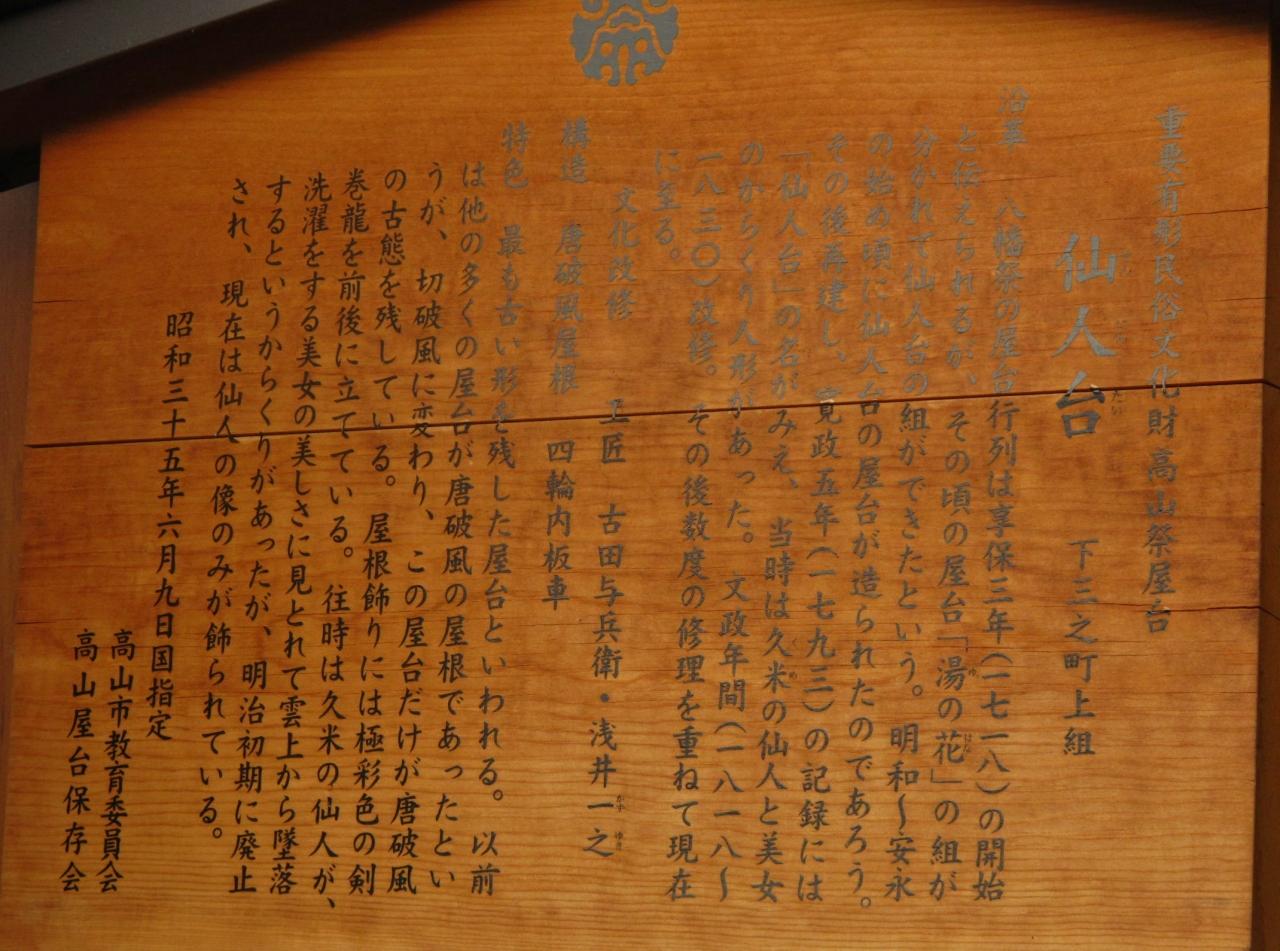 重要有形民俗文化財高山祭屋台
仙人台 下三之町上組
沿革 八幡祭の屋台行列は享保三年(一七一八)の開始
と伝えられるが、その頃の屋台「湯の花」の組が
分かれて仙人台の組ができたという。明和〜安永
の始め頃に仙人台の屋台が造られたのであろう。
その後再建し、寛政五年(一七九三)の記録には
「仙人台」の名がみえ、当時は久米の仙人と美女
のからくり人形があった。文政年間(一八一八〜
一八三〇)改修。その後数度の修理を重ねて現在
に至る。
文化改修 工匠 古田与兵衛・浅井一之
構造 唐破風屋根 四輪内板車
特色 最も古い形を残した屋台といわれる。以前
は他の多くの屋台が唐破風の屋根であったとい
うが、切破風に変わり、この屋台だけが唐破風
の古態を残している。屋根飾りには極彩色の剣
巻龍を前後に立てている。往時は久米の仙人が、
洗濯をする美女の美しさに見とれて雲上から墜落
するというからくりがあったが、明治初期に廃止
され、現在は仙人の像のみが飾られている。
昭和三十五年六月九日国指定
高山市教育委員会
高山屋台保存会